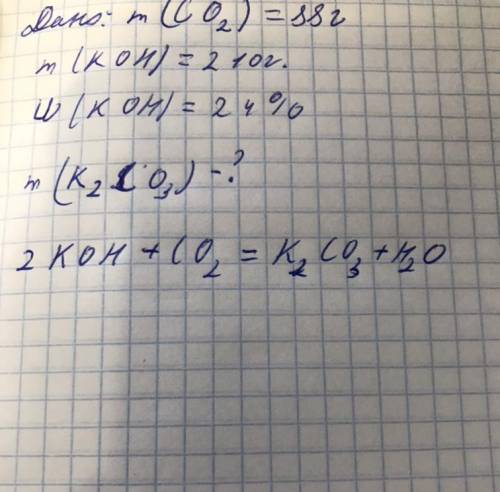 Дано: m(CO₂) = 88г
m(KOH) = 210г.
W(KOH) = 24%
m(K₂CO₃) - ?
2KOH + CO₂ = K₂CO₃ + H₂O